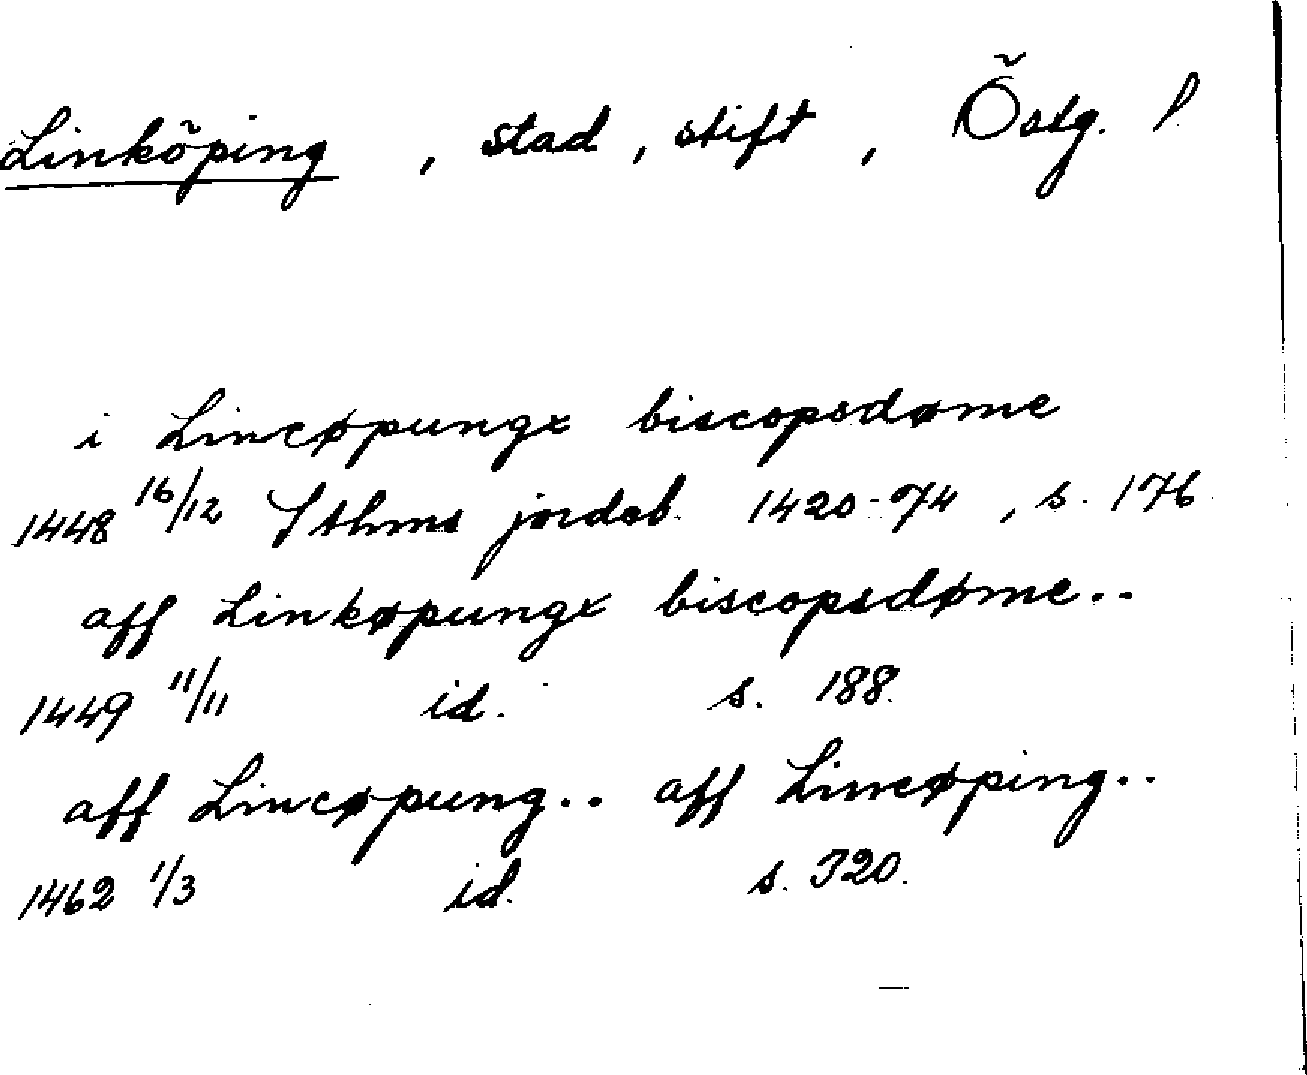 Linköping , stad, stift , Östg. l.
i Lincøpungx biscopsdøme
1448 16/12 Sthms jordab. 1420-74, s. 176.
aff Linkøpungx biscopsdøme..
1449 11/11 id. s. 188.
aff Lincøpung.. aff Lincøping..
1462 1/3 id. s. 320.